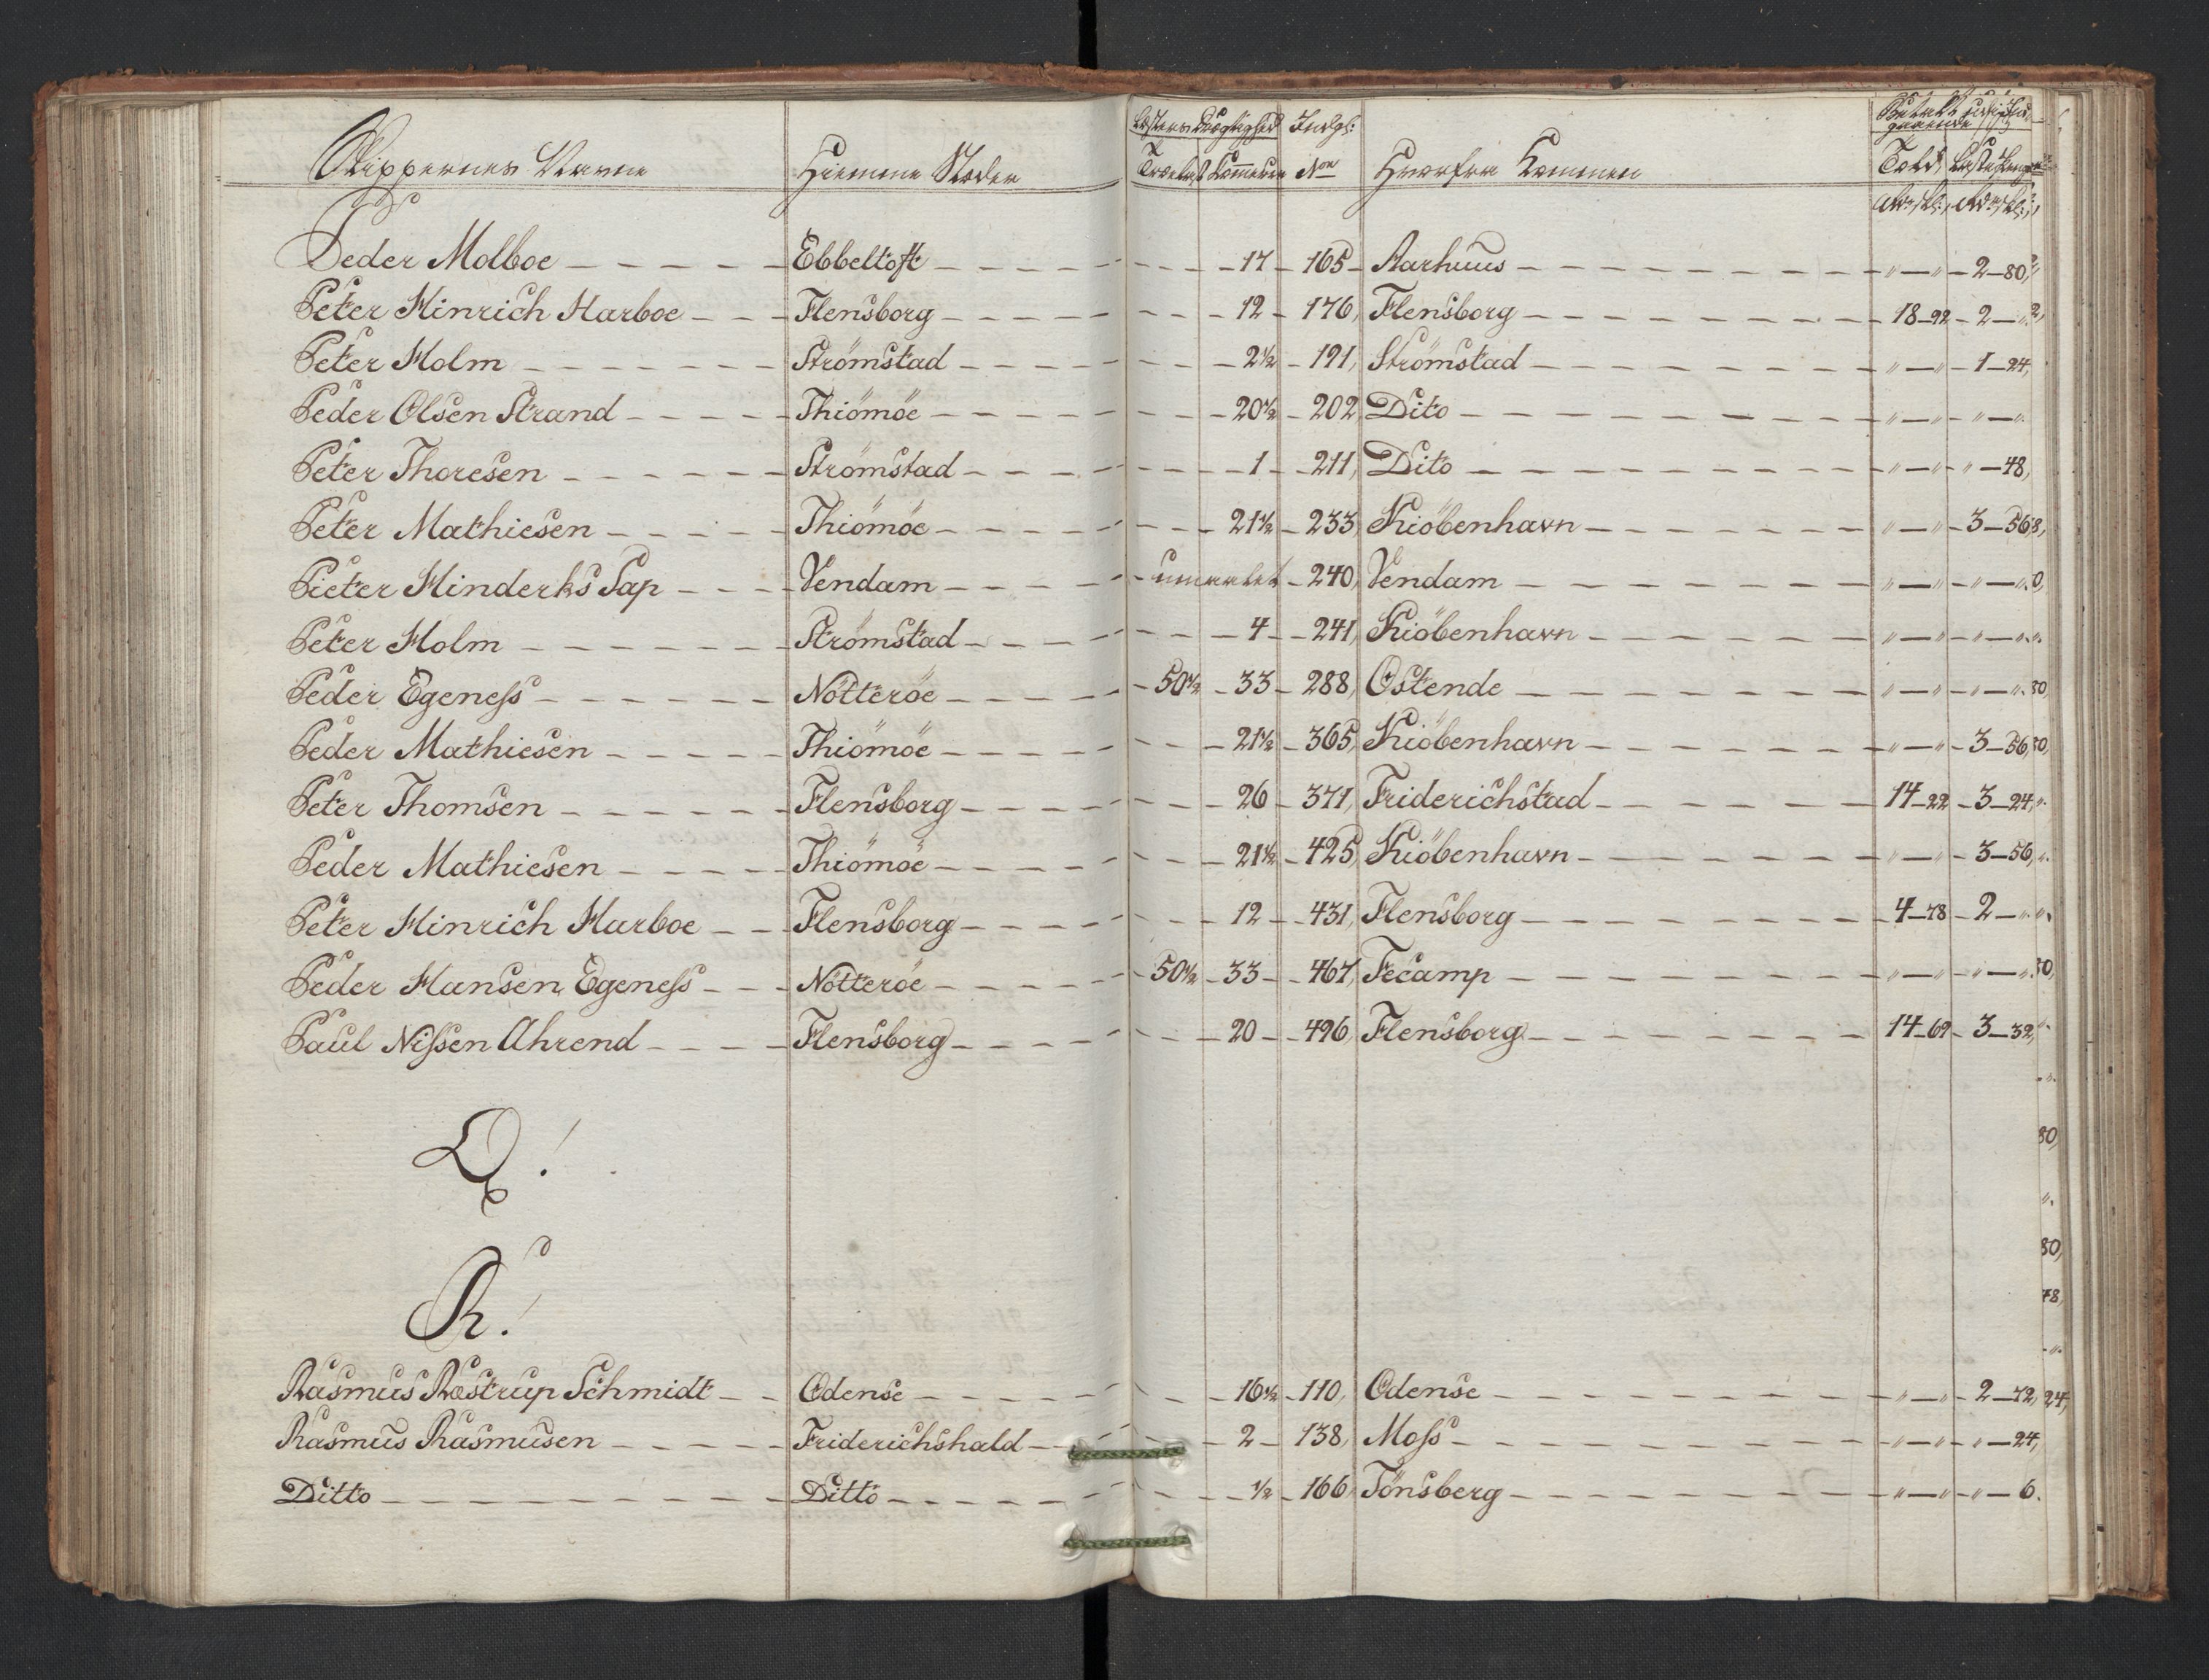 Skippernes Navne Hiemme Stæder Læsters Drægtighed Indgl: Hvorfra Kommen
Trælast Commerce No Told Lastepenge
Peder Molboe Ebbeltoft 17 165 Aarhuus " " 2 80
Peter Hinrich Harboe Flensborg 12 176 Flensborg 18 92 2 "
Peter Holm Strömstad 2½ 191 Strömstad " " 1 24
Peder Olsen Strand Thiömöe 20½ 202 Dito " " " "
Peter Thoresen Strömstad 1 211 Dito " " " 48
Peter Mathiesen Thiömöe 21½ 233 Kiöbenhavn " " 3 56
Pieter Hinderks Sap Vendam umaalet 240 Vendam " " " "
Peter Holm Strömstad 4 241 Kiöbenhavn " " " "
Peder Egeness Nötteröe 50½ 33 288 Ostende " " " "
Peder Mathiesen Thiömöe 21½ 365 Kiöbenhavn " " 3 56
Peter Thomsen Flensborg 26 371 Friderichstad 14 22 3 24
Peder Mathiesen Thiömöe 21½ 425 Kiöbenhavn " " 3 56
Peter Hinrich Harboe Flensborg 12 431 Flensborg 4 78 2 "
Peder Hansen Egeness Nötteröe 50½ 33 467 Fecamp " " " "
Paul Nissen Ahrend Flensborg 20 496 Flensborg 14 69 3 32
Q!
R!
Rasmus Røstrup Schmidt Odense 16½ 110 Odense " " 2 72
Rasmus Rasmusen Friderichshald 2 138 Moss " " " 24
Ditto Ditto ½ 166 Tönsberg " " " 6